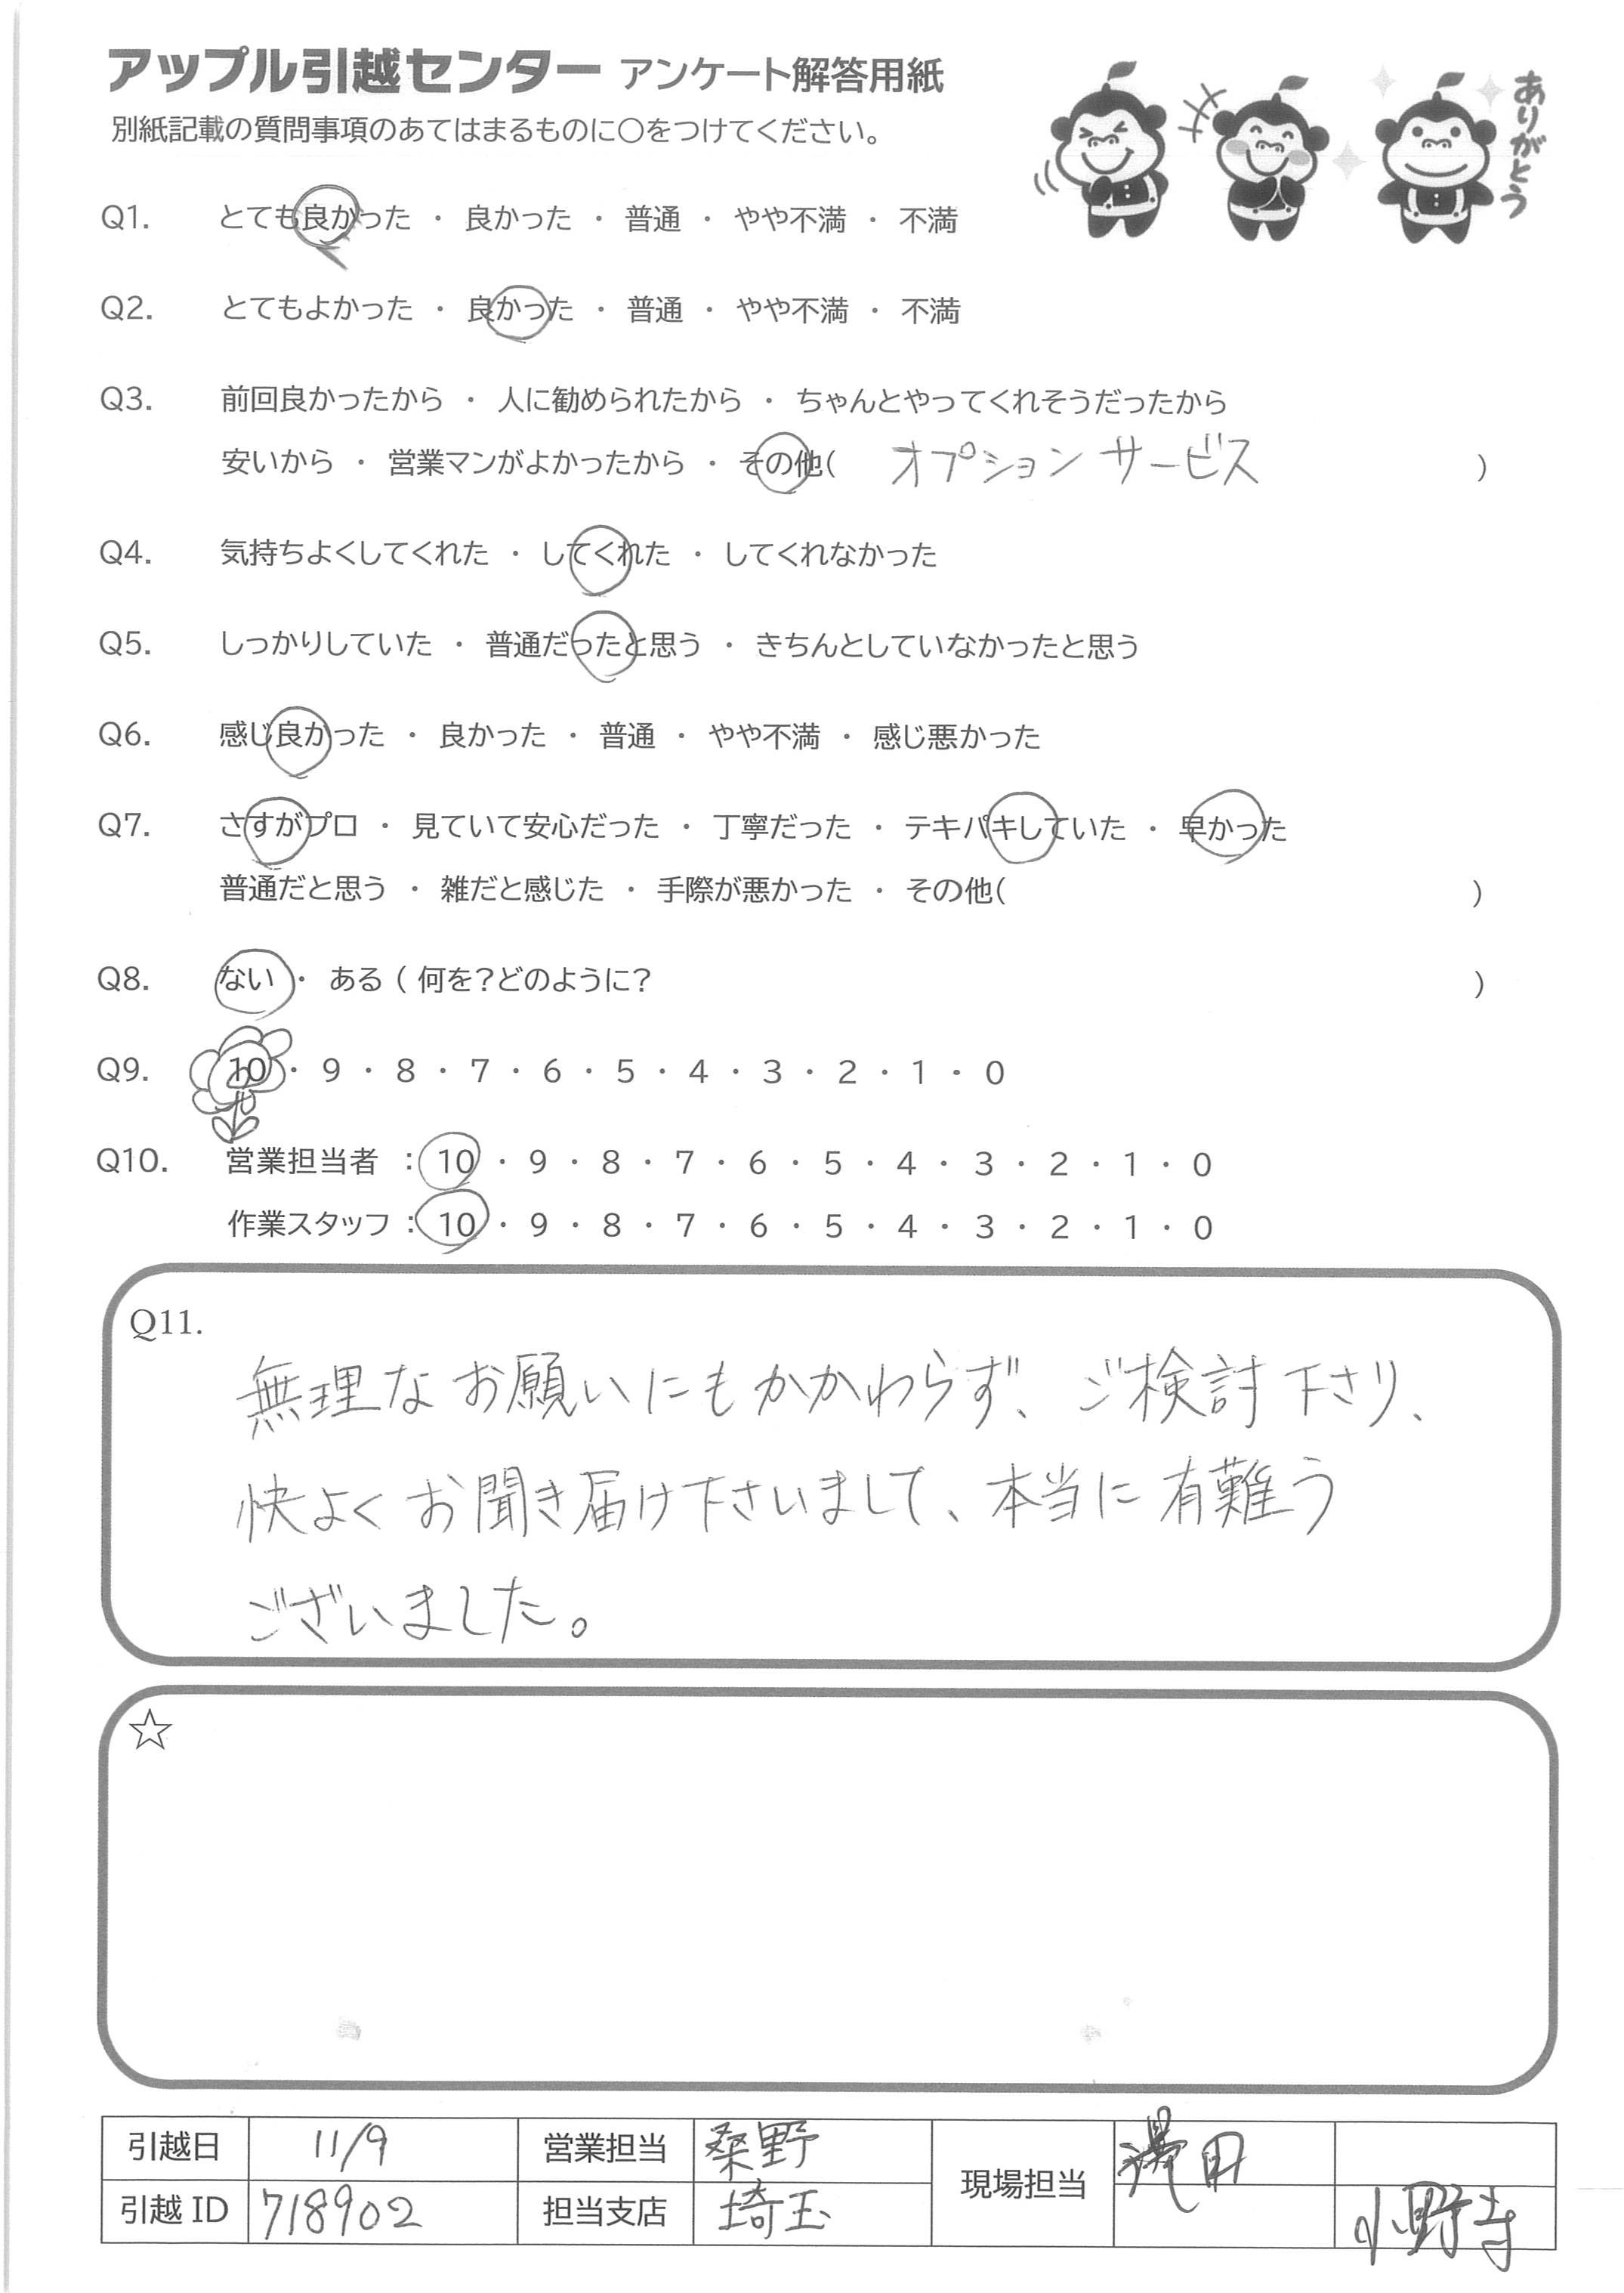 アップル引越センター アンケート解答用紙
別紙記載の質問事項のあてはまるものに〇をつけてください。
ありがとう
Q1. とても良かった ・ 良かった ・ 普通 ・ やや不満 ・ 不満
Q2. とてもよかった ・ 良かった ・ 普通 ・ やや不満 ・ 不満
Q3. 前回良かったから ・ 人に勧められたから ・ ちゃんとやってくれそうだったから
安いから ・ 営業マンがよかったから ・ その他( オプションサービス )
Q4. 気持ちよくしてくれた ・ してくれた ・ してくれなかった
Q5. しっかりしていた ・ 普通だったと思う ・ きちんとしていなかったと思う
Q6. 感じ良かった ・ 良かった ・ 普通 ・ やや不満 ・ 感じ悪かった
Q7. さすがプロ ・ 見ていて安心だった ・ 丁寧だった ・ テキパキしていた ・ 早かった
普通だと思う ・ 雑だと感じた ・ 手際が悪かった ・ その他( )
Q8. ない ・ ある ( 何を？どのように？ )
Q9. 10 ・ 9 ・ 8 ・ 7 ・ 6 ・ 5 ・ 4 ・ 3 ・ 2 ・ 1 ・ 0
Q10. 営業担当者 : 10 ・ 9 ・ 8 ・ 7 ・ 6 ・ 5 ・ 4 ・ 3 ・ 2 ・ 1 ・ 0
作業スタッフ : 10 ・ 9 ・ 8 ・ 7 ・ 6 ・ 5 ・ 4 ・ 3 ・ 2 ・ 1 ・ 0
Q11.
無理なお願いにもかかわらず、ご検討下さり、
快よくお聞き届け下さいまして、本当に有難う
ございました。
☆
引越日 11/9 営業担当 桑野 現場担当
引越ID 718902 担当支店 埼玉 小野寺